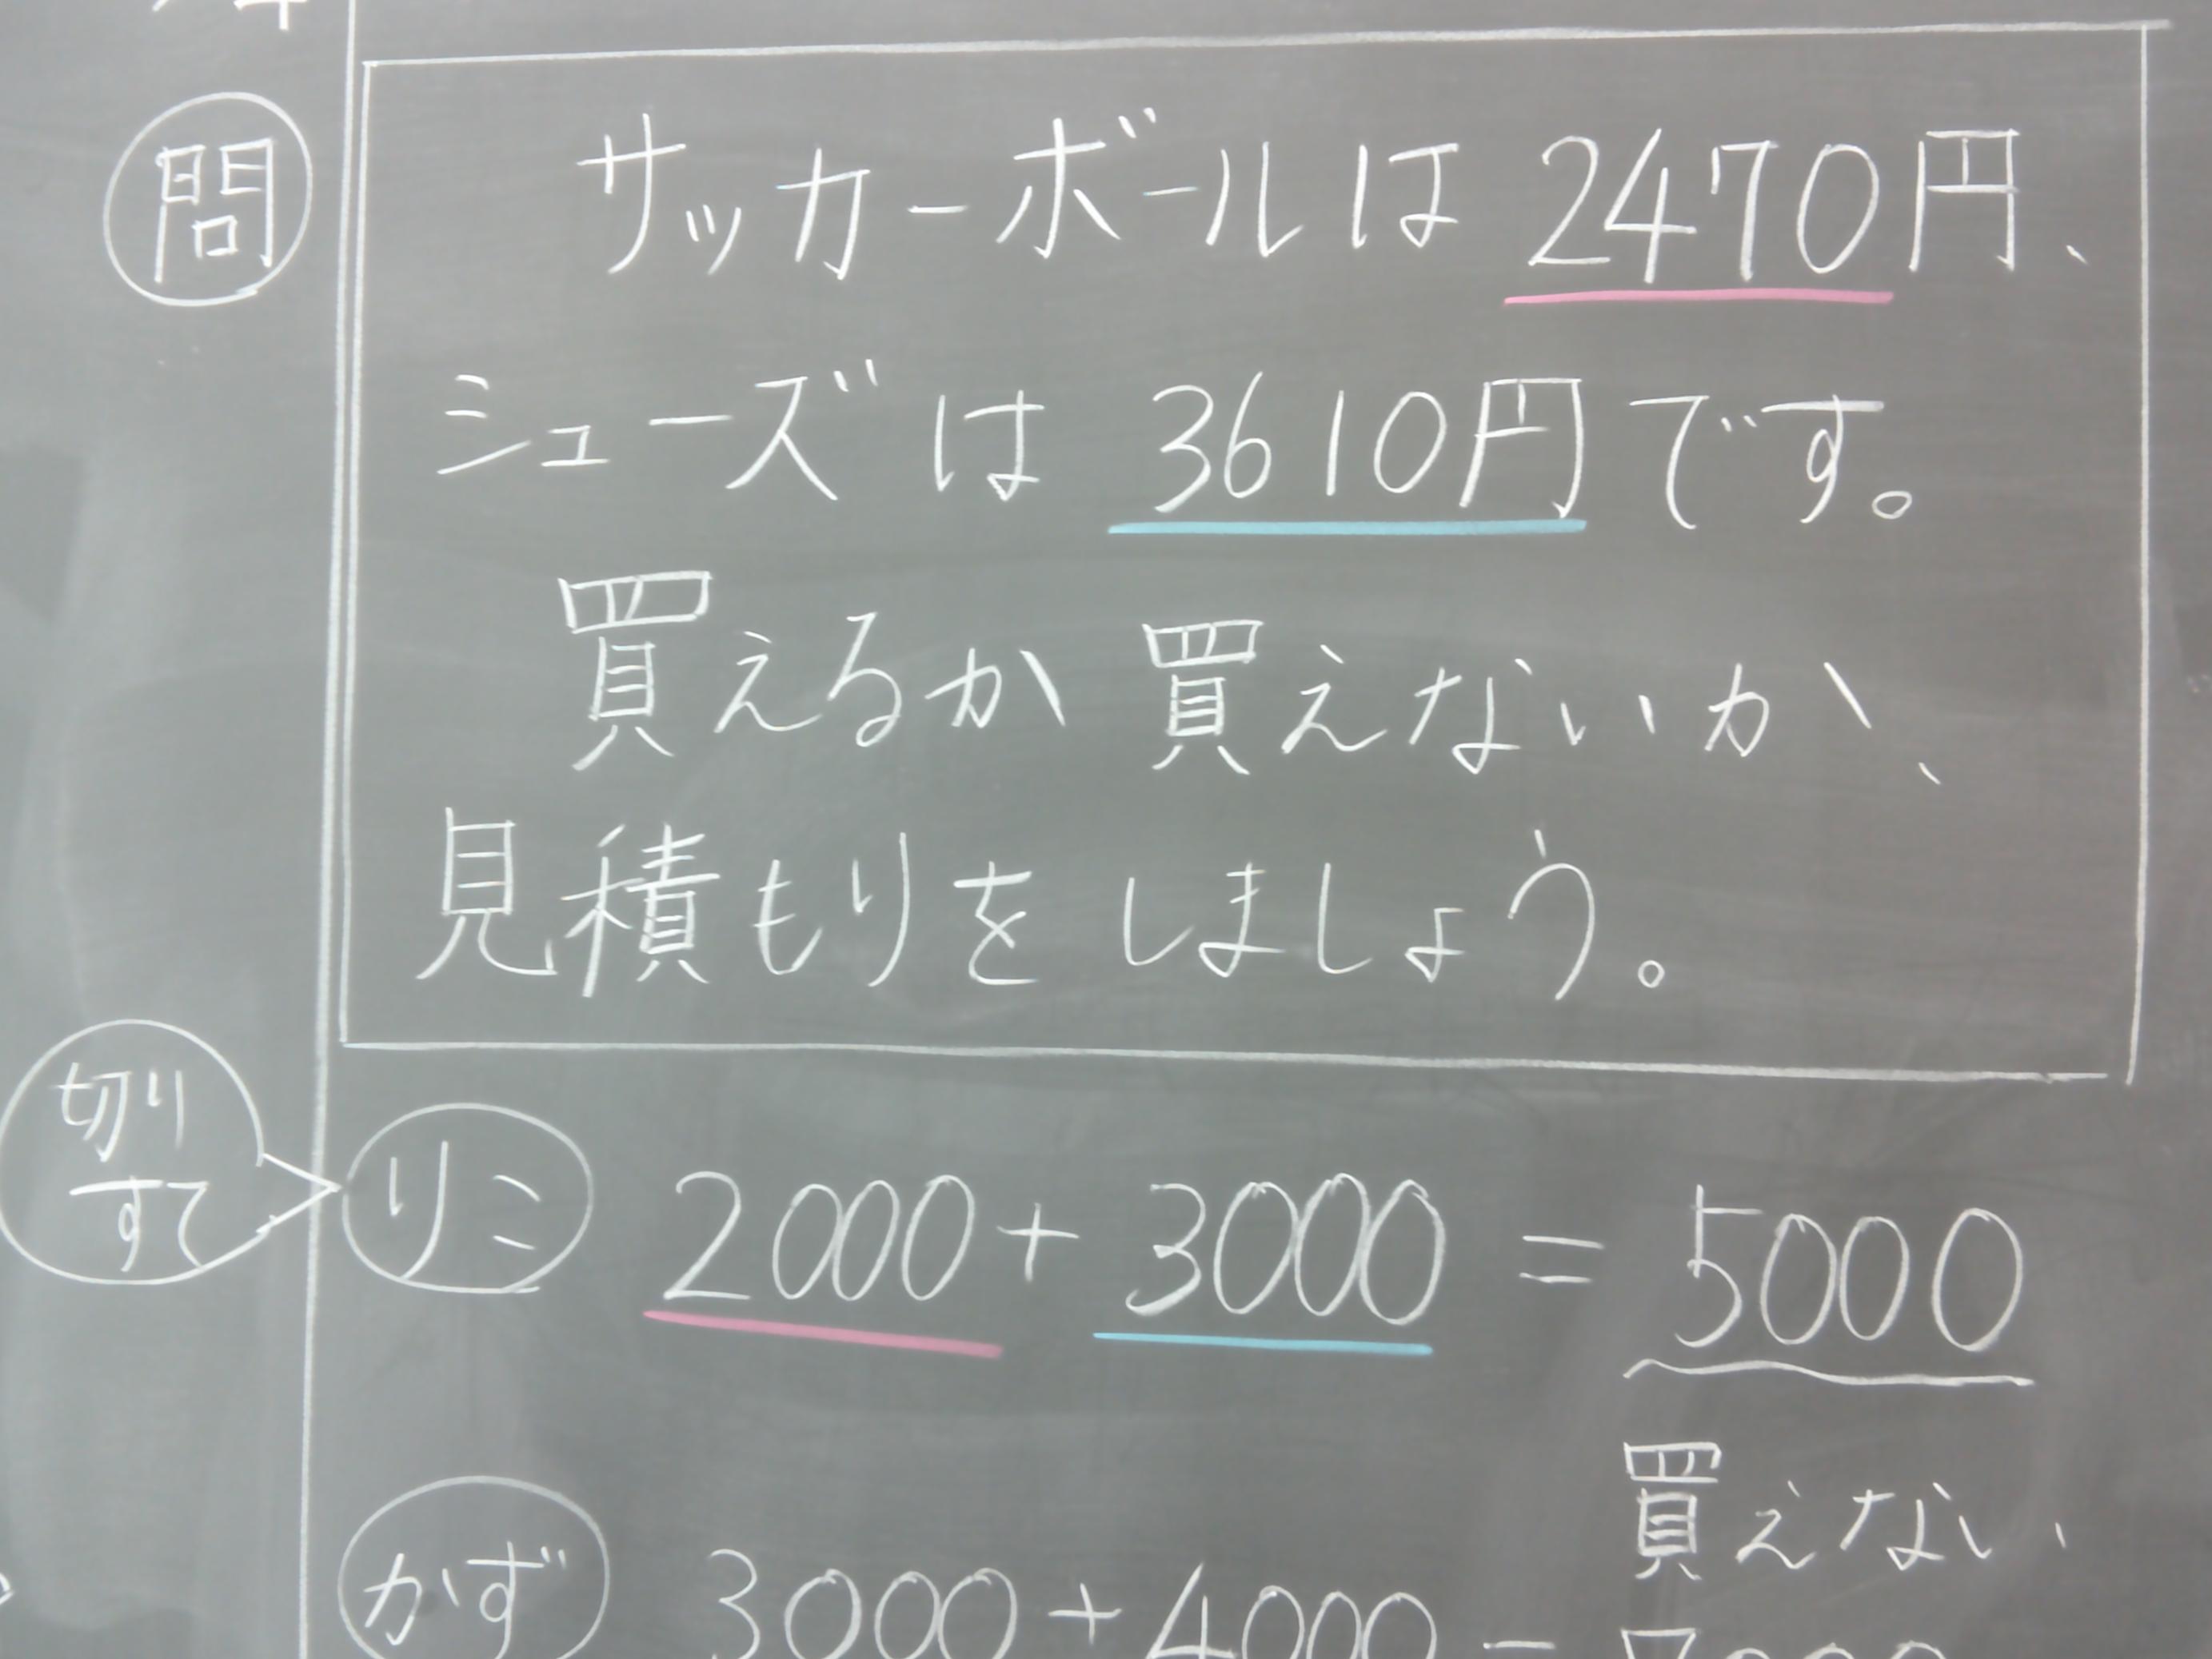 問
サッカーボールは2470円、
シューズは3610円です。
買えるか買えないか、
見積もりをしましょう。
切り
すて
リこ 2000+3000=5000
買えない
かず 3000+4000=7000